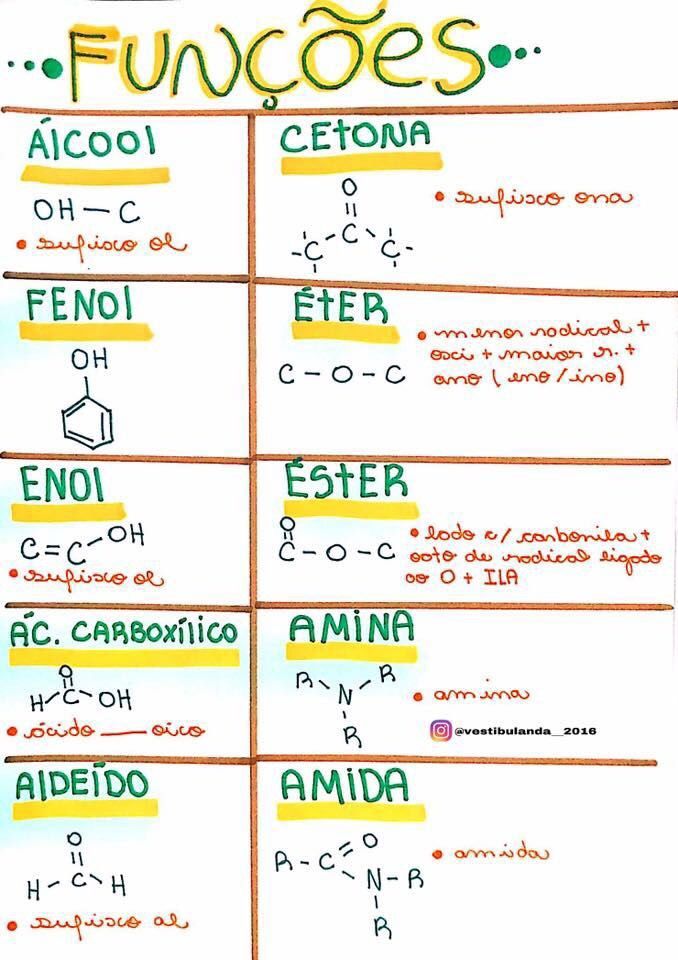 FUNÇÕES
ÁlCOOl
OH — C
• sufisco ol
CETONA
O
||
C
C
C
• sufisco ona
FENOl
OH
ÉTER
C - O - C
• menor radical +
osci + maior r. +
ano ( eno / ino)
ENOl
C=C-OH
• sufisco ol
ÉSTER
O
C - O - C
• lado c/ carbonila +
ato de radical ligado
ao O + ILA
ÁC. CARBOXÍLICO
O
H-C-OH
• ácido ___ oico
AMINA
R R
N
R
• amina
@vestibulanda__2016
AlDEÍDO
O
||
H - C - H
• sufisco al
AMIDA
R - C = O
N - R
R
• amida